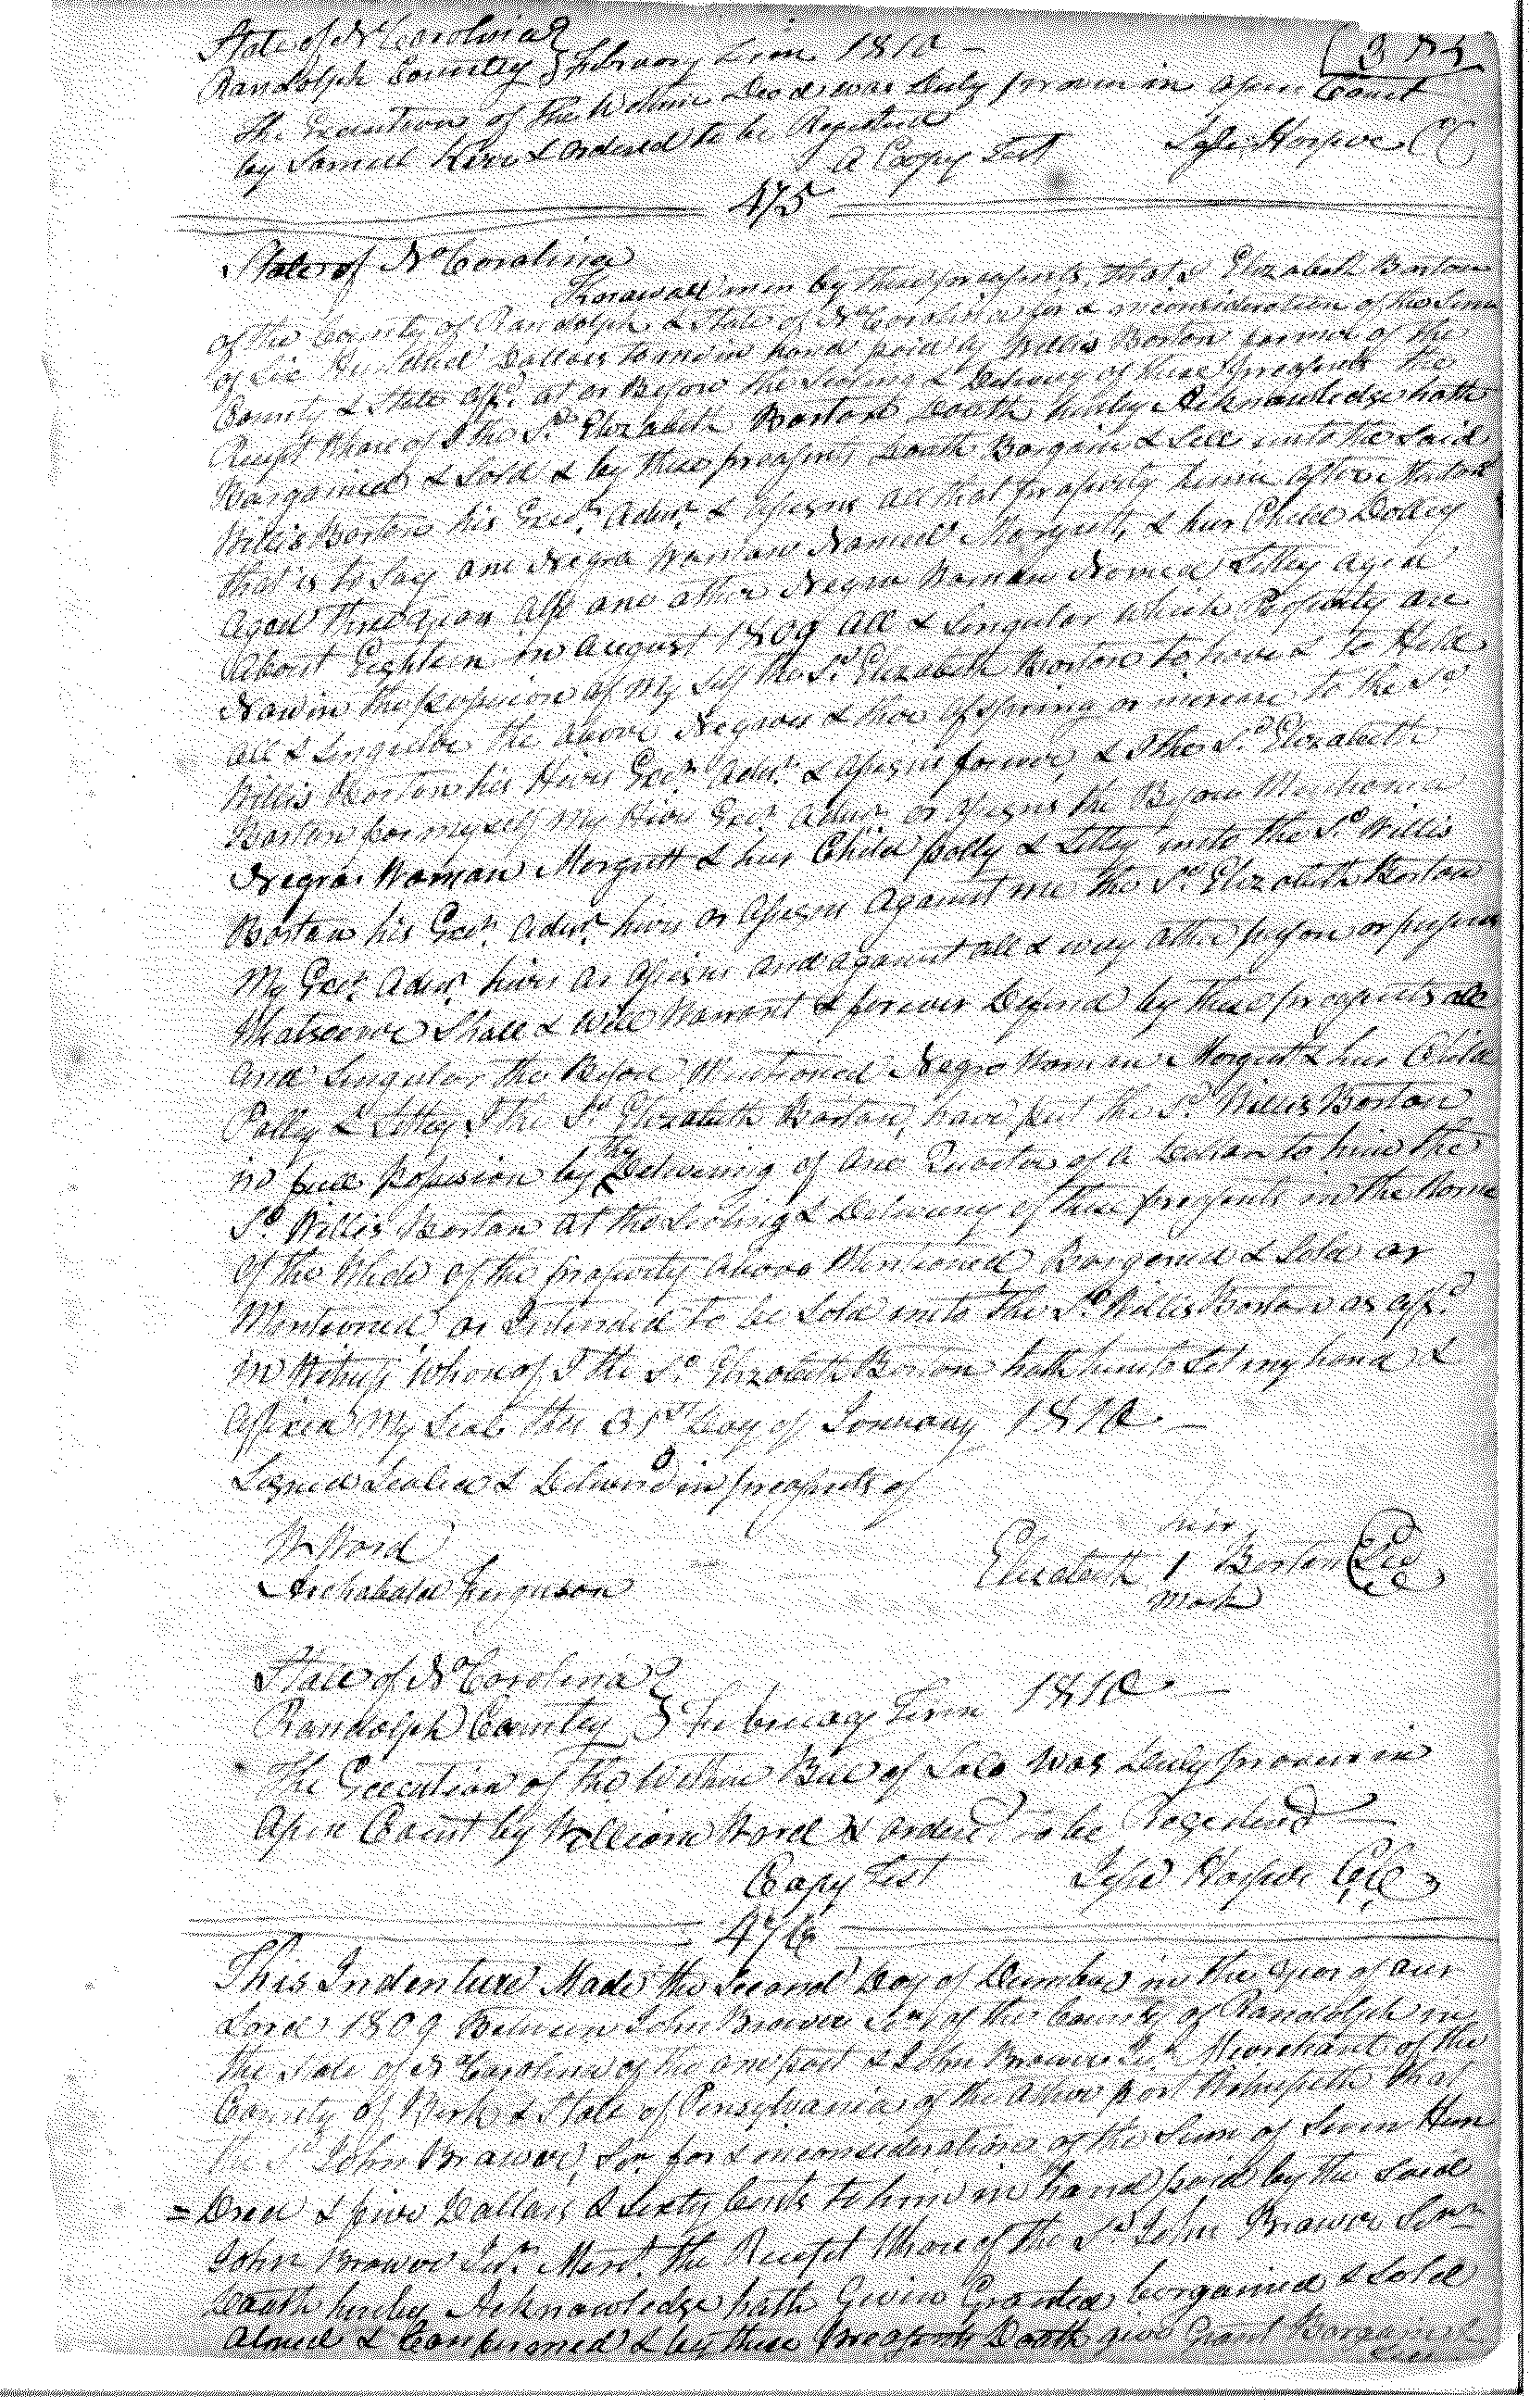 State of No Carolina }
Randolph County } February Term 1810
The Execution of the Within Deed was Duly proven in open Court
by Samuel & ordered to be Registered
A Coopy Test Jesse Harper CC
475
State of No Carolina
Know all men by these preasents, that I Elizabeth Borton
of the County of Randolph & State of No Carolina for & inconsideration of the Sum
of Six Hundred Dollars to me in hand paid by Willis Borton of the
County & State affsd. at or Before the Sealing & Delivery of these preasents the
Receipt Whareof I the Sd. Elizabeth Borton Doath hereby Acknowledge hath
Bargained & Sold & by these preasents Doath Bargain & Sell unto the Said
Willis Borton his Exers. Admr. & assigns all that property herin after
that is to Say one Negro Woman Named Morgrett, & hur Child Polley
Aged three year also one other Negro Woman Named Lettey aged
About Eighteen in August 1809 all & Singular which Property are
Now in the possesion of My Self the Sd. Elizabeth Borton to have & to Hold
all & Singular the above Negroes & thire ofspring or increase to the Sd.
Willis Borton his Heirs Exers. Admr. & assigns forever, & I the Sd. Elizabeth
Borton for my self my Heirs Exer. Admr. or assigns the Before Mentioned
Negro Woman Morgrett & hur Child polly & Lettey unto the Sd. Willis
Borton his Exer. Admr. heirs or assigns against me the Sd. Elizabeth Borton
My Exer. Admr. heirs or assigns and against all & every other person or persons
Whatsoever Shall & Will Warrant & forever Defend by these preasents all
and Singular the Before Mentioned Negro Woman Morgrett & hur Child
Polley & Lettey I the Sd. Elizabeth Borton, have put the Sd. Willis Borton
in full possesion by the Delivering of one Quarter of a Dollar to him the
Sd. Willis Borton at the Sealing & Delivery of these preasents in the Name
of the Whole of the property above Mentioned Bargened & Sold or
Mentioned or Intended to be Sold unto the Sd. Willis Borton as affsd.
in Witness Whareof I the Sd. Elizabeth Borton hath hunto Set my hand &
affixed My Seal this 31st Day of Jonuary 1810
Signed Sealed & Deliverd in preasents of
W Word
Archabald Ferguson
hur
Elizabeth I Borton Seal
mark
State of No Carolina }
Randolph County } February Term 1810
The Execution of the Within Bill of Sale was Duly proven in
Open Court by William Word & orderd to be Registered
Copy Test Jesse Harper Clk
476
This Indenture Made the Second Day of December in the year of our
Lord 1809 Between John Brower Senr of the County of Randolph in
the State of No Carolina of the one part & John Brower Jur. Merchant of the
County of Berk & State of Pensylvania of the other part Witnesseth that
the Sd. John Brower, Senr. for & inconsideration of the Sum of Seven Hun
=Dred & five Dollars & Sixty Cents to him in hand paid by the Said
John Brower Jur. Mercht. the Receipt Whare of the Sd. John Brower Senr
Doath hereby Acknowledge hath Given Granted bargained & Sold
aliened & Confirmed & by these preasents Doath give Grant Bargain &